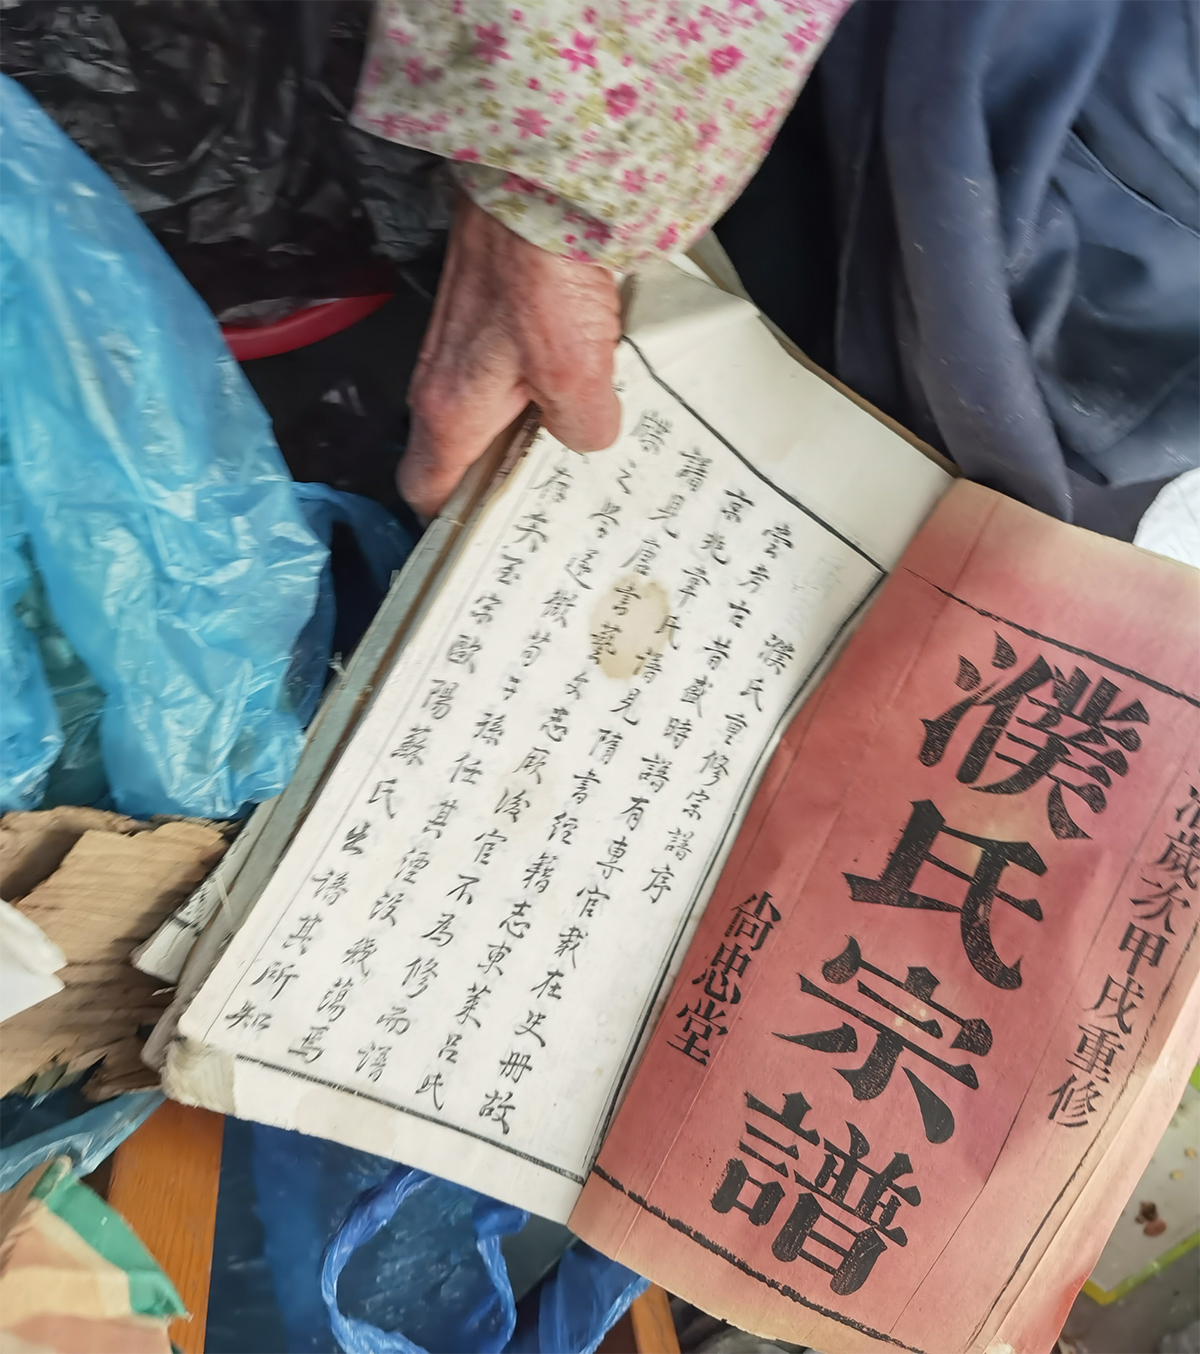 治歲次甲戌重修
濮氏宗譜
尚忠堂
濮氏重修宗譜序
嘗考古昔盛時譜有專官載在史冊故
京兆韋氏譜見隋書經籍志東萊呂氏
譜見唐書藝文志厥後官不為修而譜
牒之學遂微苟子孫任其湮没幾蕩焉
存矣至宋歐陽蘇氏出譜其所知